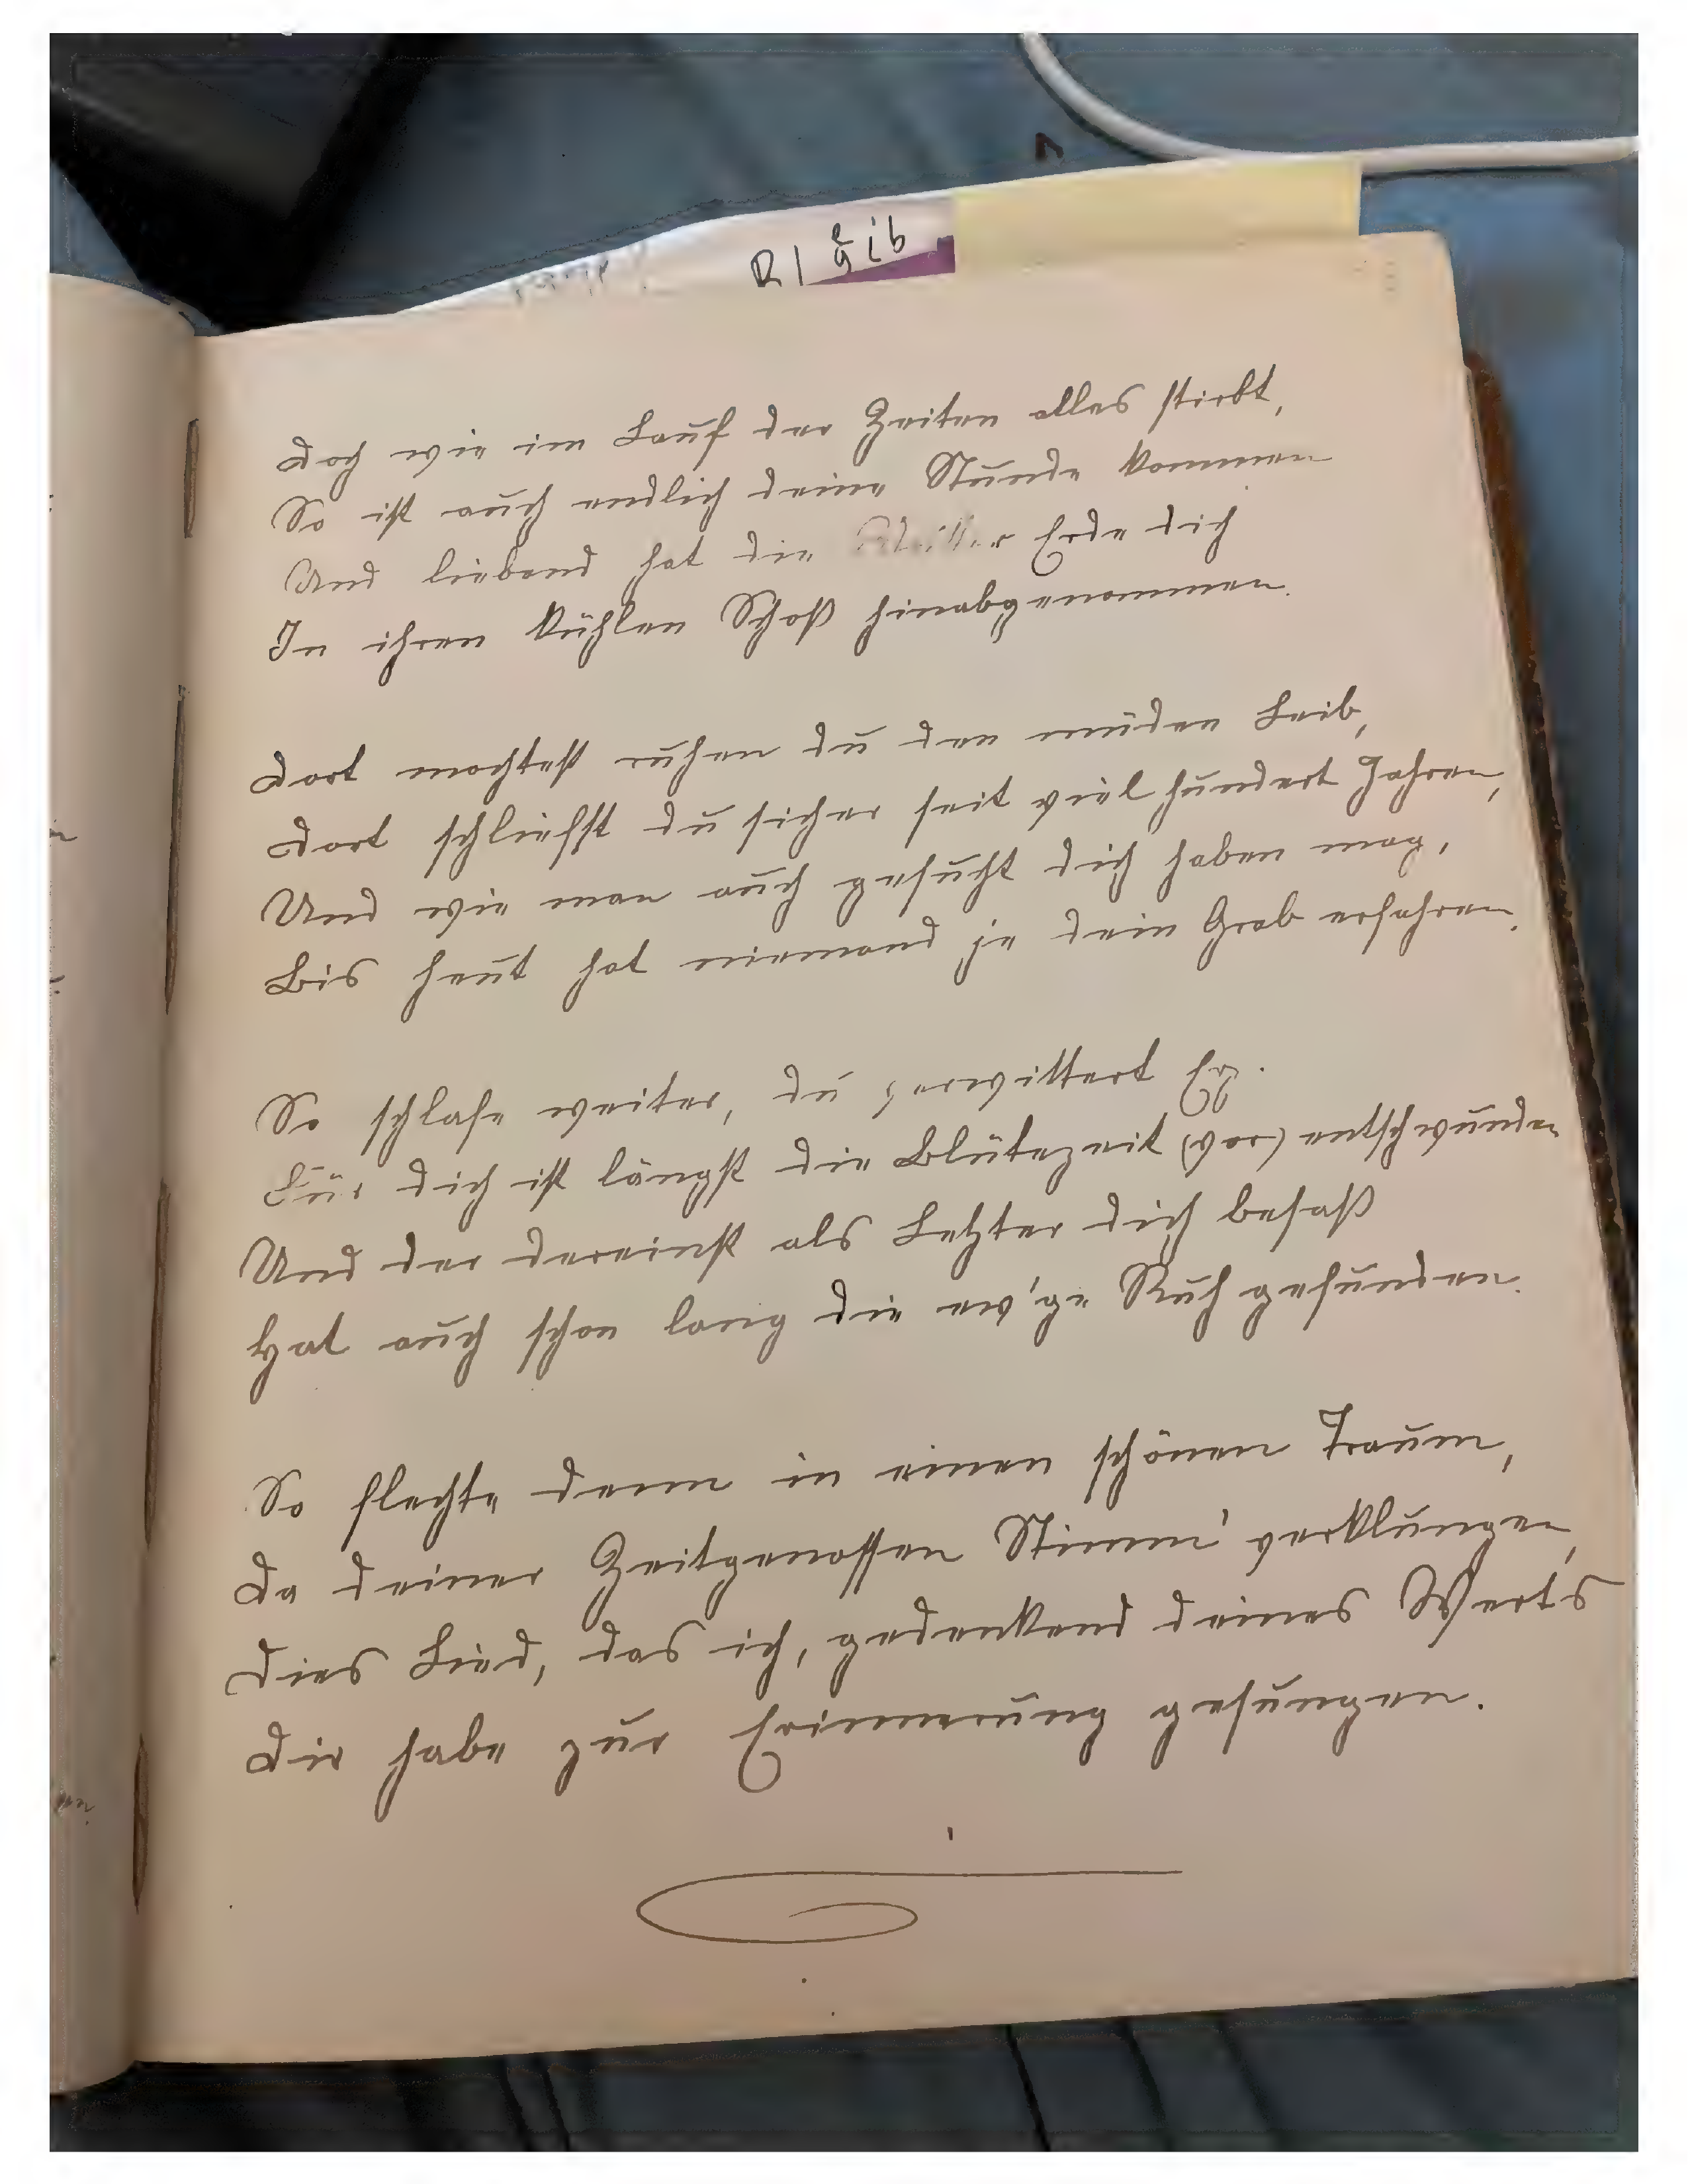 Doch wie im Lauf der Zeiten alles stirbt,
So ist auch endlich deine Stunde kommen
Und liebend hat die Mutter Erde dich
In ihren kühlen Schoß hinabgenommen.
Dort mochtest ruhen du den müden Leib,
Dort schliefst du sicher seit viel hundert Jahren,
Und wie man auch gesucht dich haben mag,
Bis heut hat niemand je dein Grab erfahren.
So schlafe weiter, du zerwittert Erz.
Für dich ist längst die Blütezeit (ver) entschwunden
Und der dereinst als Letzter dich besaß
Hat auch schon lang die ew'ge Ruh gefunden.
So flechte denn in einen schönen Traum,
Da deiner Zeitgenossen Stimm' verklungen,
Dies Lied, das ich, gedenkend deines Wert's
Dir habe zur Erinnerung gesungen.